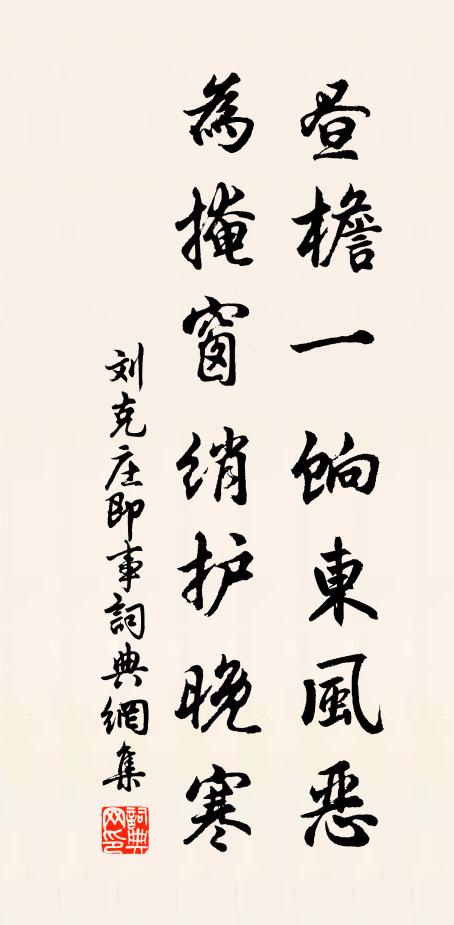 昼檐一餉東風恶
為掩窗绡护晚寒
刘克庄即事詞典網集
詞典网印